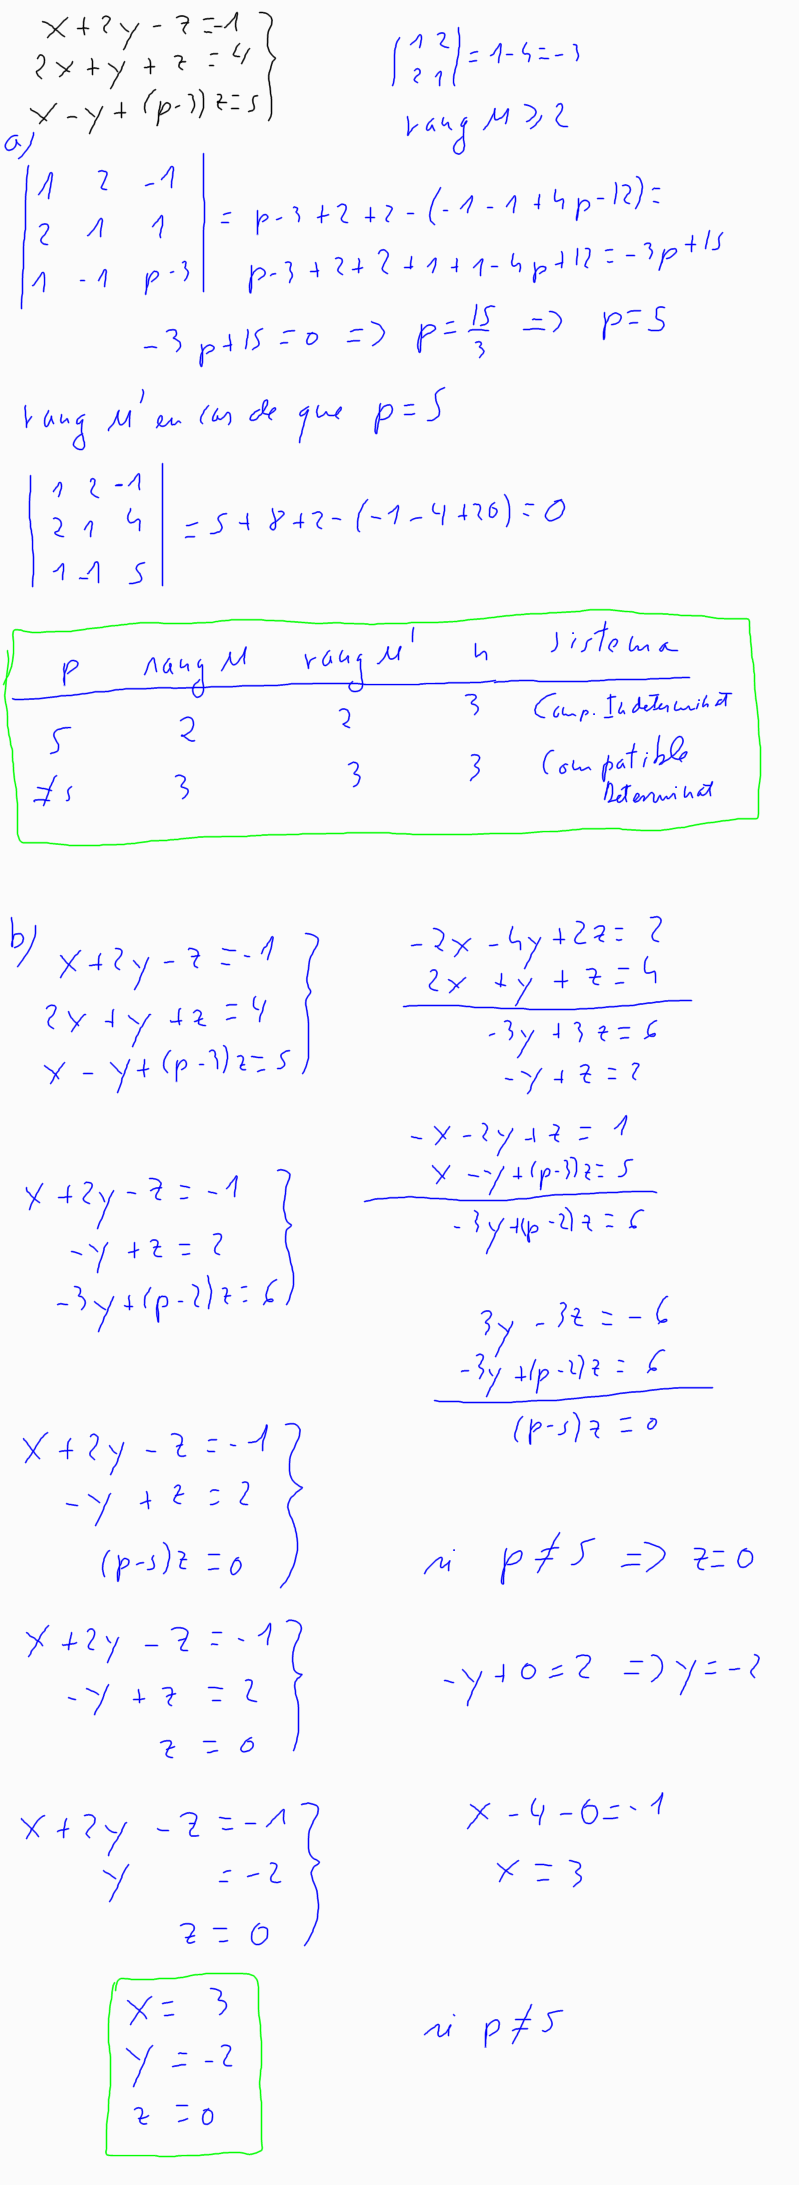 x+2y-z=-1
2x+y+z=4
x-y+(p-3)z=5
|1 2|
|2 1| = 1-4=-3
rang M ≥ 2
a)
|1 2 -1|
|2 1 1| = p-3+2+2-(-1-1+4p-12)=
|1 -1 p-3| p-3+2+2+1+1-4p+12=-3p+15
-3p+15=0 => p=15/3 => p=5
rang M' en cas de que p=5
|1 2 -1|
|2 1 4| = 5+8+2-(-1-4+20)=0
|1 -1 5|
p rang M rang M' n sistema
5 2 2 3 Comp. Indeterminat
≠5 3 3 3 Compatible
Determinat
b)
x+2y-z=-1
2x+y+z=4
x-y+(p-3)z=5
-2x-4y+2z=2
2x+y+z=4
-3y+3z=6
-y+z=2
-x-2y+z=1
x-y+(p-3)z=5
-3y+(p-2)z=6
x+2y-z=-1
-y+z=2
-3y+(p-2)z=6
3y-3z=-6
-3y+(p-2)z=6
(p-5)z=0
x+2y-z=-1
-y+z=2
(p-5)z=0
si p≠5 => z=0
x+2y-z=-1
-y+z=2
z=0
-y+0=2 => y=-2
x+2y-z=-1
y=-2
z=0
x-4-0=-1
x=3
x=3
y=-2
z=0
si p≠5